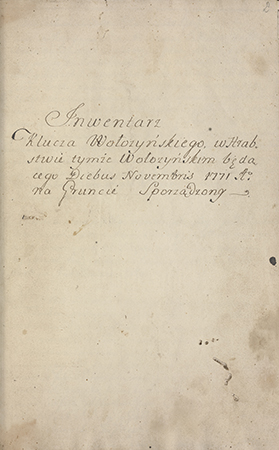 Inwentarz
Klucza Wołożyńskiego, w Hrab,
stwie tymże Wołożyńskim będą,
cego Diebus Novembris 1771 Ao
na Gruncie Sporządzony